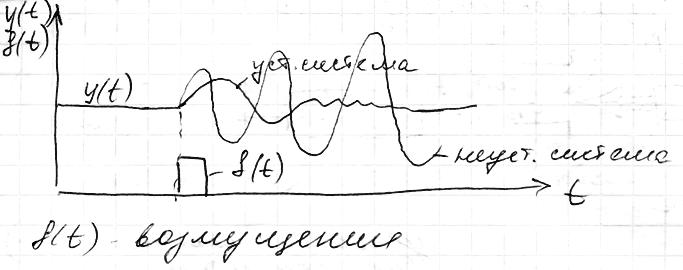 y(t)
f(t)
уст. система
y(t)
f(t)
неуст. система
t
f(t) - возмущение